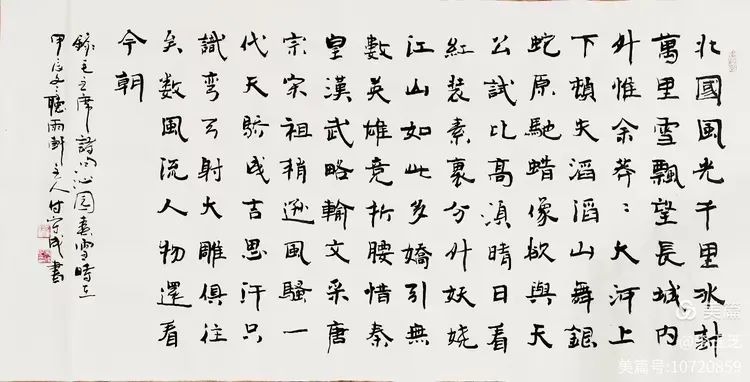 北國風光千里冰封
萬里雪飄望長城內
外惟余莽:大河上
下頓失滔滔山舞銀
蛇原馳蜡像欲與天
公試比高須晴日看
紅装素裹分外妖娆
江山如此多嬌引無
數英雄竞折腰惜秦
皇漢武略輸文采唐
宗宋祖稍遜風騷一
代天驕成吉思汗只
識弯弓射大雕俱往
矣数風流人物還看
今朝
録毛主席詩词沁园春雪時在
甲辰冬聽雨軒主人付書
美篇
美篇号:10720859